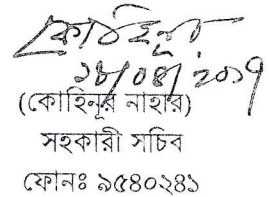 কোহিনূর
১৮/০৪/২০১৭
(কোহিনূর নাহার)
সহকারী সচিব
ফোনঃ ৯৫৪০২৪১